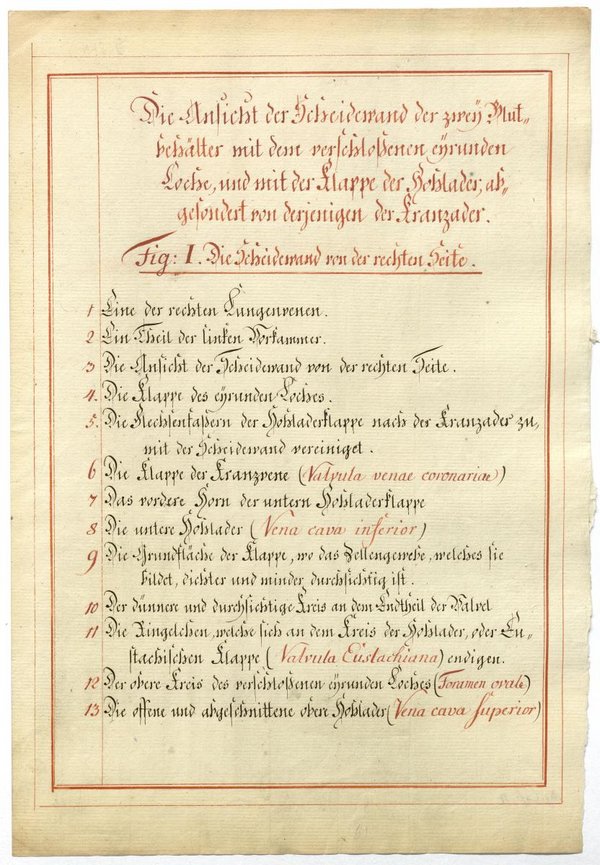 Die Ansicht der Scheidewand der zwey Blut-
behälter mit dem verschloßenen eyrunden
Loche, und mit der Klappe der Hohlader, ab-
gesondert von derjenigen der Kranzader.
Fig: I. Die Scheidewand von der rechten Seite.
1 Eine der rechten Lungenvenen.
2 Ein Theil der linken Vorkammer.
3 Die Ansicht der Scheidewand von der rechten Seite.
4. Die Klappe des eyrunden Loches.
5. Die Flechsenfaßern der Hohladerklappe nach der Kranzader zu,
mit der Scheidewand vereiniget.
6 Die Klappe der Kranzvene (Valvula venae coronariae)
7 Das vordere Horn der untern Hohladerklappe
8 Die untere Hohlader (Vena cava inferior)
9 Die Grundfläche der Klappe, wo das Zellengewebe, welches sie
bildet, dichter und minder durchsichtig ist.
10 Der dünnere und durchsichtige Kreis an dem Endtheil der Valvel
11 Die Ringelchen, welche sich an dem Kreis der Hohlader, oder Eu-
stachischen Klappe (Valvula Eustachiana) endigen.
12 Der obere Kreis des verschloßenen eyrunden Loches (Foramen ovale)
13 Die offene und abgeschnittene obere Hohlader (Vena cava superior)